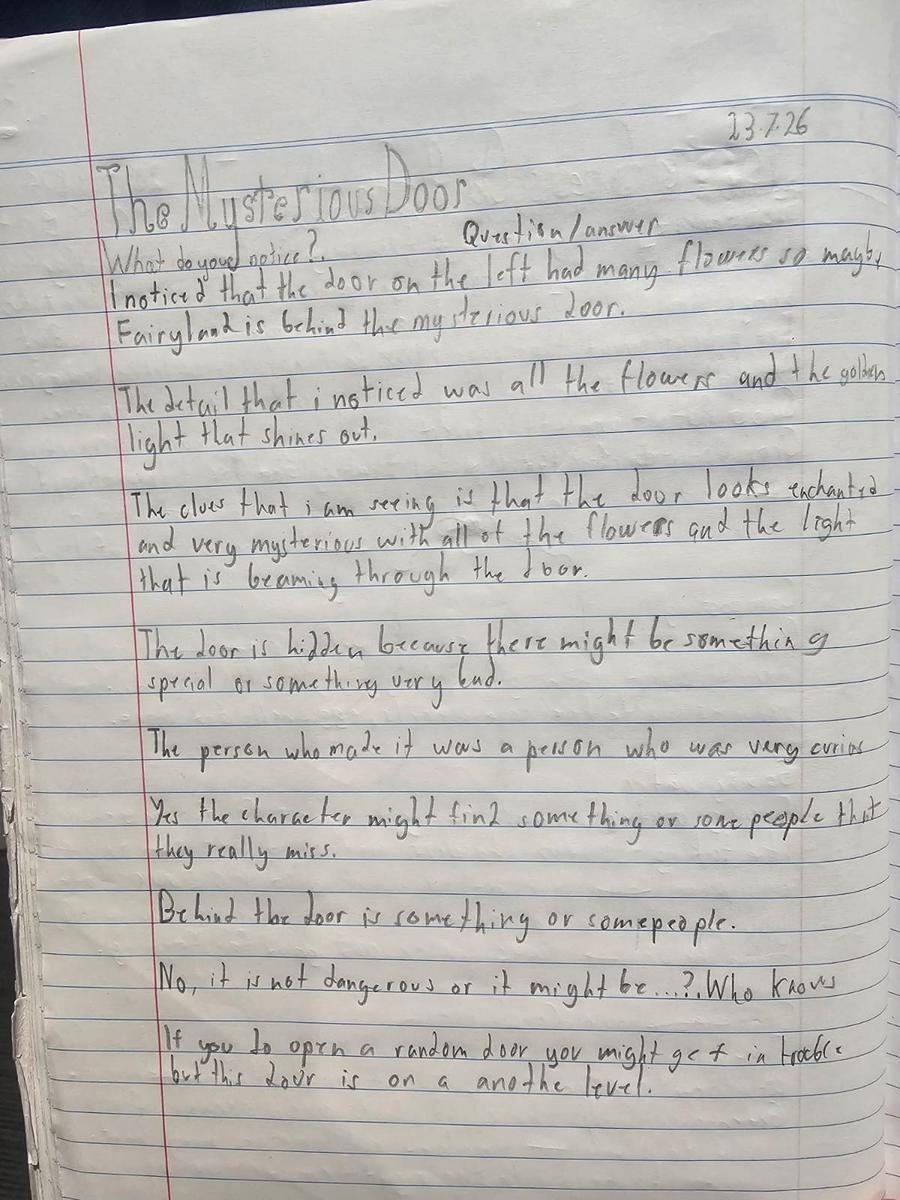 23.7.26
The Mysterious Door
Question/answer
What do you notice?.
I noticed that the door on the left had many flowers so maybe
Fairyland is behind the mysterious door.
The detail that i noticed was all the flowers and the golden
light that shines out.
The clues that i am seeing is that the door looks enchanted
and very mysterious with all of the flowers and the light
that is beaming through the door.
The door is hidden because there might be something
special or something very bad.
The person who made it was a person who was very curios
Yes the character might find something or some people that
they really miss.
Behind the door is something or somepeople.
No, it is not dangerous or it might be...?. Who knows
If you do open a random door you might get in
but this door is on a anothe level.